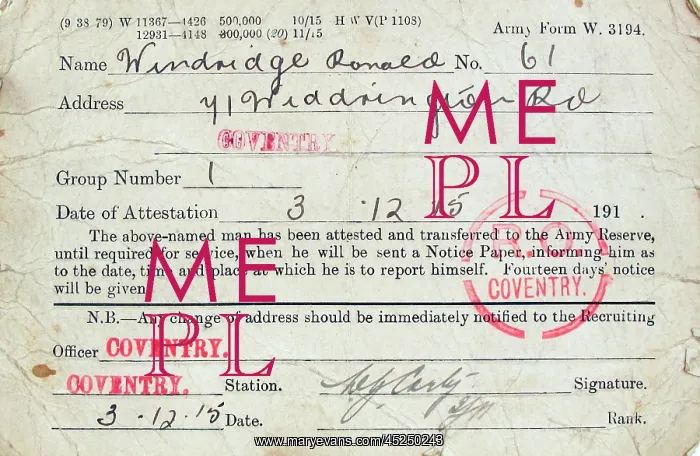 (9 38 79) W 11367—4426 500,000 10/15 H W V(P 1108)
12931—4148 300,000 (20) 11/15
Army Form W. 3194.
Name Windridge Ronald No. 61
Address 41 Widdrington Rd
COVENTRY.
Group Number 1
Date of Attestation 3 12 15 191 .
The above-named man has been attested and transferred to the Army Reserve,
until required for service, when he will be sent a Notice Paper, informing him as
to the date, time and place at which he is to report himself. Fourteen days' notice
will be given.
R.O.
COVENTRY.
N.B.—Any change of address should be immediately notified to the Recruiting
Officer COVENTRY.
COVENTRY. Station. Signature.
3 . 12 . 15 Date. Rank.
ME
PL
ME
PL
www.maryevans.com/45250243